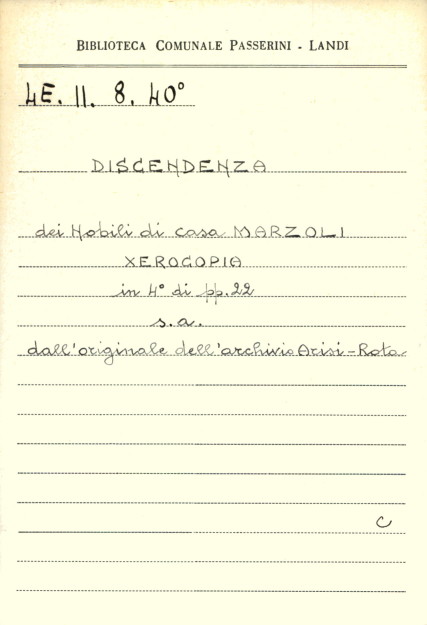 BIBLIOTECA COMUNALE PASSERINI - LANDI
4E. 11. 8. 40°
DISCENDENZA
dei Nobili di casa MARZOLI
XEROCOPIA
in 4° di pp. 22
s.a.
dall'originale dell'archivio Arisi-Rota
C